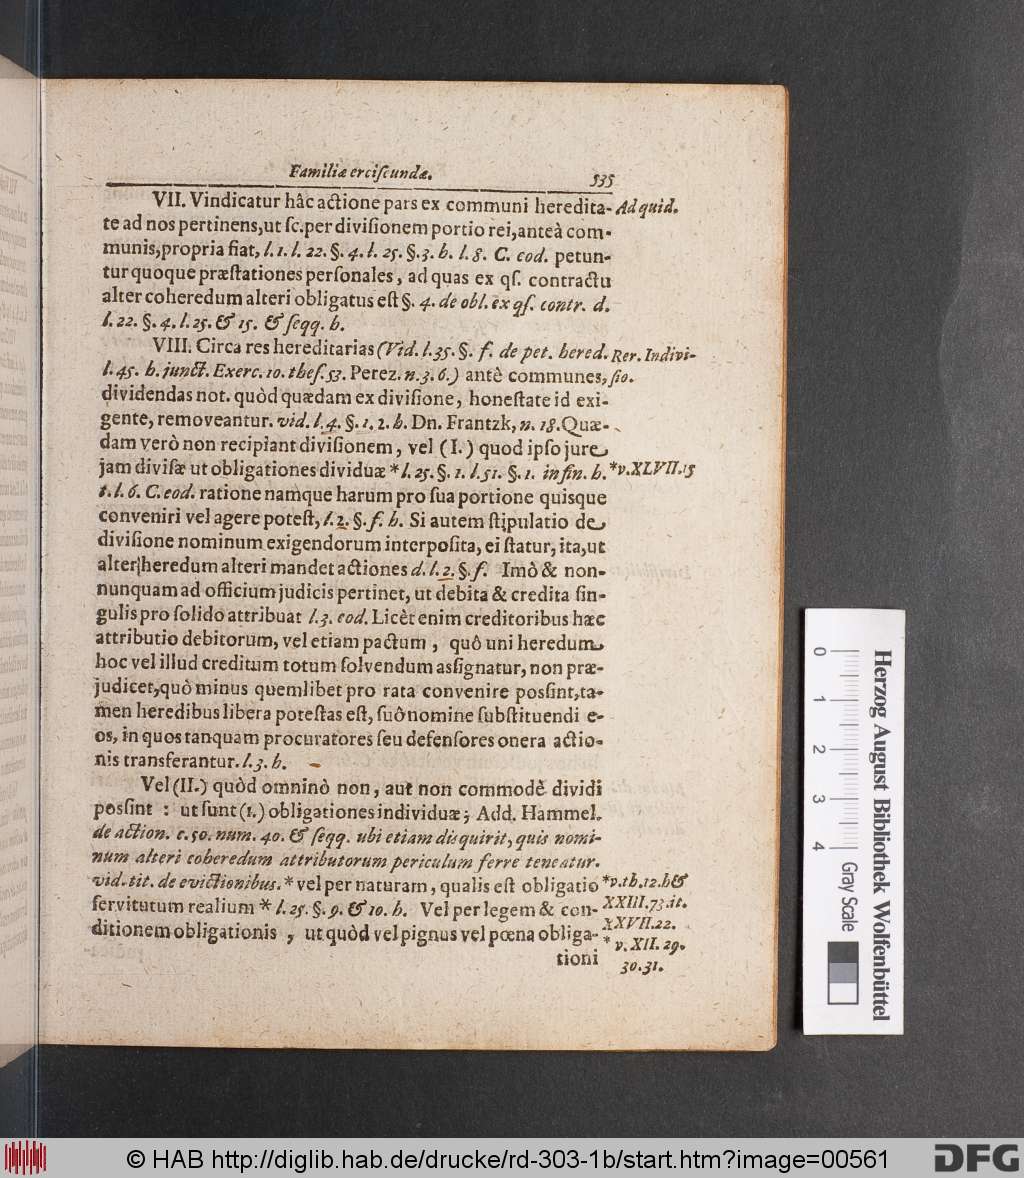 Familiæ erciſcundæ.
535
VII. Vindicatur hâc actione pars ex communi heredita- Ad quid.
te ad nos pertinens, ut ſc. per diviſionem portio rei, anteà com-
munis, propria fiat, l. 1. l. 22. §. 4. l. 25. §. 3. h. l. 8. C. eod. petun-
tur quoque præſtationes perſonales, ad quas ex qſ. contractu
alter coheredum alteri obligatus eſt §. 4. de obl. ex qſ. contr. d.
l. 22. §. 4. l. 25. & 15. & ſeqq. h.
VIII. Circa res hereditarias (Vid. l. 35. §. f. de pet. hered. Rer. Indivi-
l. 45. h. junct. Exerc. 10. theſ. 53. Perez. n. 3. 6.) antè communes, ſio.
dividendas not. quòd quædam ex diviſione, honeſtate id exi-
gente, removeantur. vid. l. 4. §. 1. 2. h. Dn. Frantzk, n. 18. Quæ-
dam verò non recipiant diviſionem, vel (I.) quod ipſo jure
jam diviſæ ut obligationes dividuæ * l. 25. §. 1. l. 51. §. 1. in fin. h. * v. XLVII. 15
t. l. 6. C. eod. ratione namque harum pro ſua portione quisque
conveniri vel agere poteſt, l. 2. §. f. h. Si autem ſtipulatio de
diviſione nominum exigendorum interpoſita, ei ſtatur, ita, ut
alter heredum alteri mandet actiones d. l. 2. §. f. Imò & non-
nunquam ad officium judicis pertinet, ut debita & credita ſin-
gulis pro ſolido attribuat l. 3. eod. Licèt enim creditoribus hæc
attributio debitorum, vel etiam pactum, quô uni heredum
hoc vel illud creditum totum ſolvendum aſsignatur, non præ-
judicet, quò minus quemlibet pro rata convenire poſsint, ta-
men heredibus libera poteſtas eſt, ſuô nomine ſubſtituendi e-
os, in quos tanquam procuratores ſeu defenſores onera actio-
nis transferantur. l. 3. h.
Vel (II.) quòd omninò non, aut non commodè dividi
poſsint : ut ſunt (1.) obligationes individuæ; Add. Hammel.
de action. c. 50. num. 40. & ſeqq. ubi etiam disquirit, quis nomi-
num alteri coheredum attributorum periculum ferre teneatur.
vid. tit. de evictionibus. * vel per naturam, qualis eſt obligatio * v. th. 12. h &
ſervitutum realium * l. 25. §. 9. & 10. h. Vel per legem & con- XXIII. 73. it.
XXVII. 22.
ditionem obligationis, ut quòd vel pignus vel pœna obliga- * v. XII. 29.
tioni 30. 31.
0
1
2
3
4
Gray Scale
Herzog August Bibliothek Wolfenbüttel
© HAB http://diglib.hab.de/drucke/rd-303-1b/start.htm?image=00561
DFG